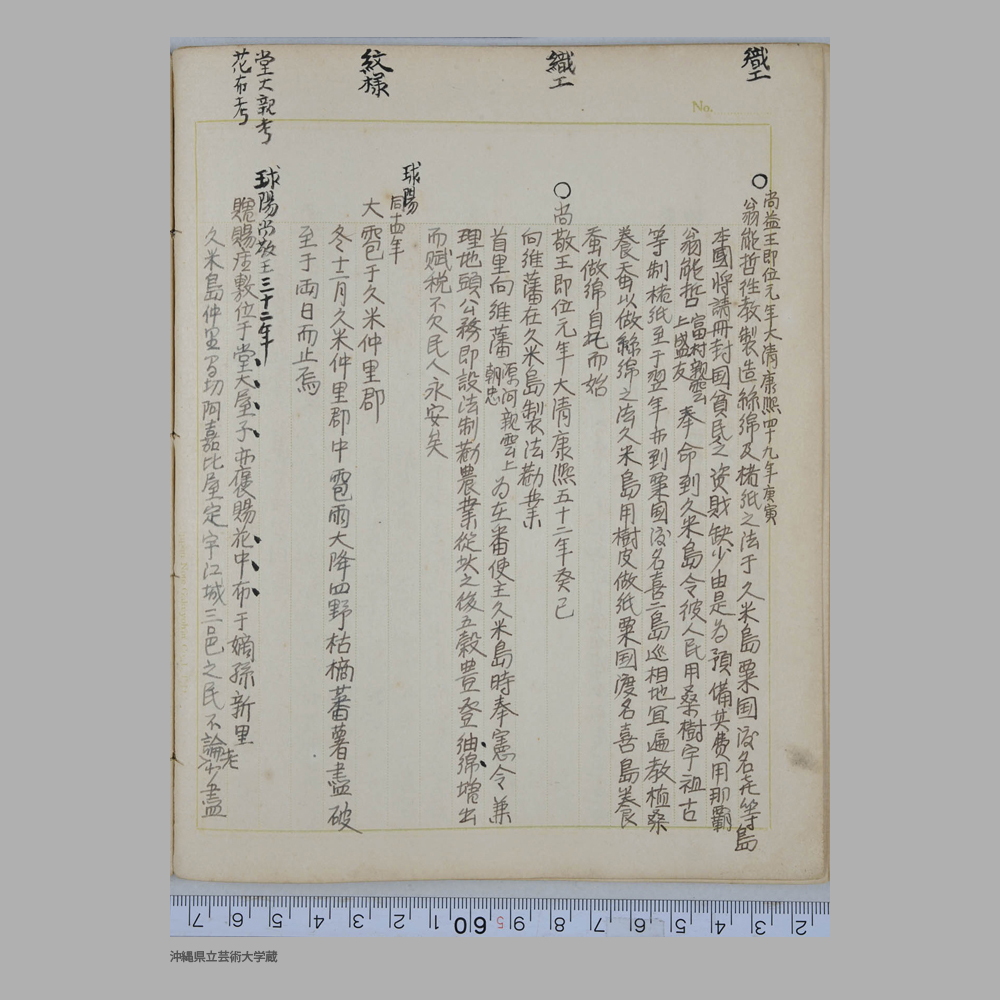 織工
織工
紋様
堂大親考
花布考
No.
○尚益王即位元年大清康熙四十九年庚寅
翁能哲徃教製造絲綿及楮紙之法于久米島粟国渡名㐂等島
本國将請冊封國貧民乏資財缺少由是為預備其費用那覇
翁能哲富村親雲上盛友奉命到久米島令彼人民用桑樹宇祖古
等制楮紙至于翌年亦到粟国渡名喜二島巡相地宜遍教植桑
養蚕以做絲綿之法久米島用樹皮做紙粟国渡名喜島養
蚕做綿自此而始
○尚敬王即位元年大清康熙五十二年癸巳
向維藩在久米島製法勸業
首里向維藩原河親雲上朝忠為在番使主久米島時奉憲令兼
理地頭公務即設法制勸農業從此之後五穀豊登紬綿増出
而賦税不欠民人永安矣
球陽
同十四年
大雹于久米仲里郡
冬十二月久米仲里郡中雹雨大降四野枯槁蕃薯盡破
至于両日而止焉
球陽尚敬王三十二年
賜座敷位于堂大屋子亦褒賜花中布于嫡孫新里
久米島仲里間切阿嘉比屋定宇江城三邑之民不論老少盡
7 6 5 4 3 2 1 60 5 9 8 7 6 5 4 3 2
沖縄県立芸術大学蔵